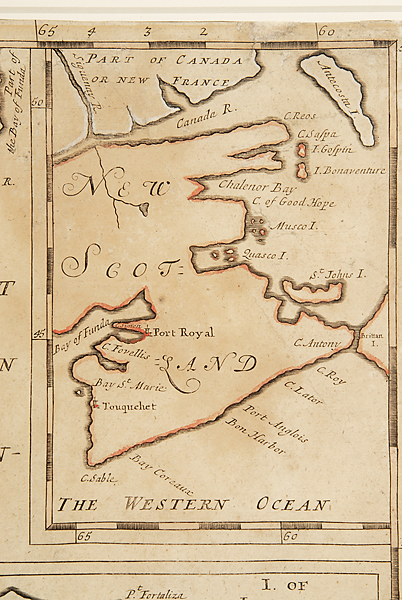 65 4 3 2 60
Part of
the Bay of Funda
PART OF CANADA
OR NEW FRANCE
Siguenay R.
Antecosta I.
50
Canada R.
C. Reos
C. Gaspa
I. Gospin
R.
I. Bonaventure
NEW
Chalenor Bay
C. of Good Hope
Musco I.
SCOT=
Quasco I.
T
St. Johns I.
45
Bay of Funda
Port Royal
C. Antony
Brittan
I.
C. Fovellis
LAND
N
C. Roy
Bay St. Marie
C. Lator
Touquchet
Port Anglois
Bon Harbor
N-
Bay Coreaux
C. Sable
THE WESTERN OCEAN
65 60
I. OF
Pt. Fortaliza